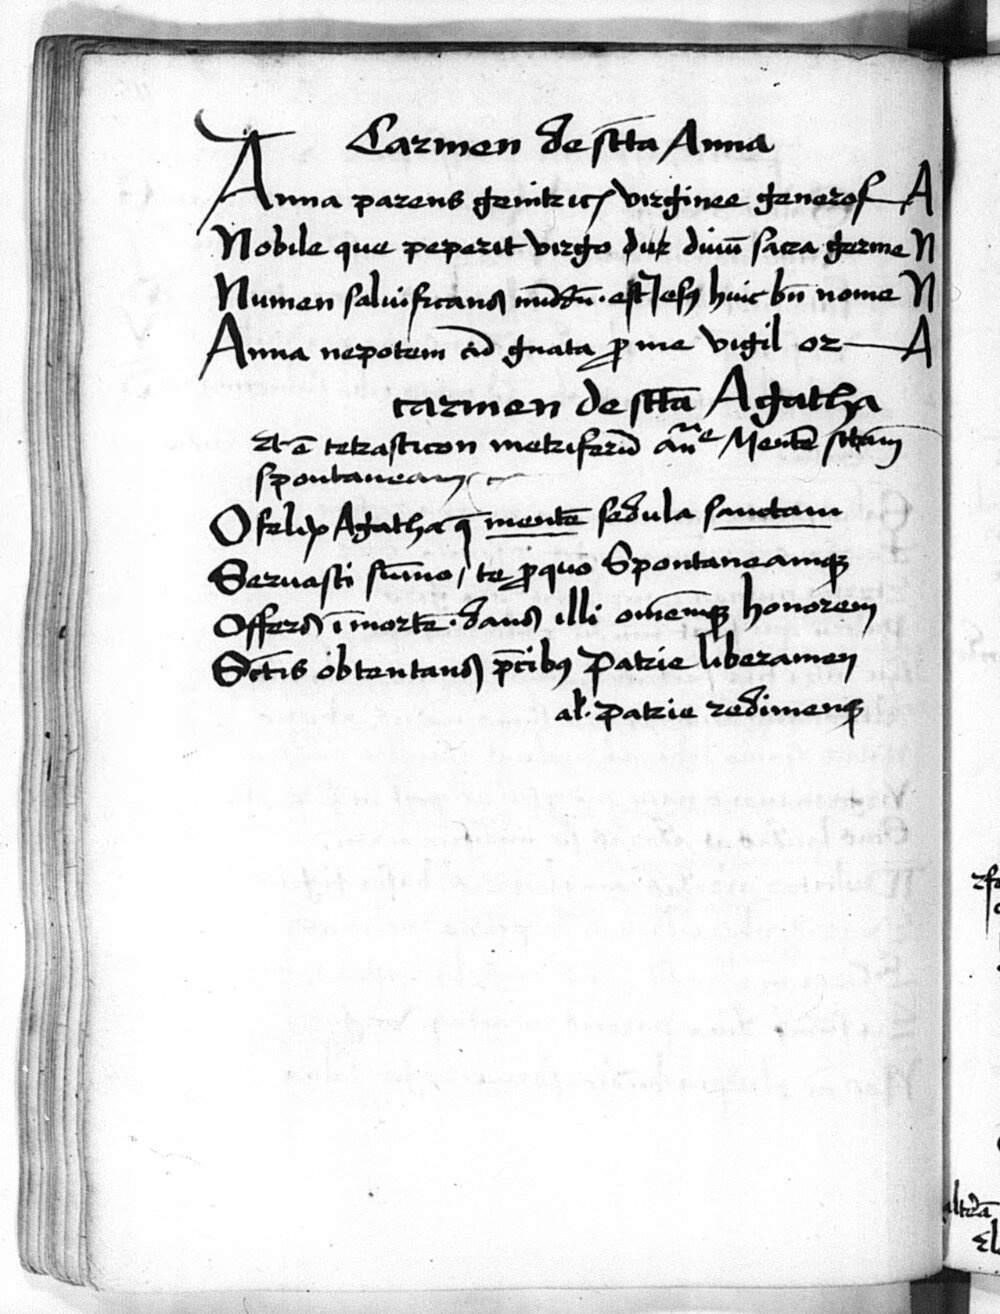 Carmen de sc̄ta Anna
Anna parens genitricis virginee generosA
Nobile que peperit virgo diuū sacra germeN
Numen saluificans mūdū. est Jesus huic bn̄ nomeN
Anna nepotem gnata ꝓ me vigil orA
carmen de sc̄tā Agatha
ē tetrasticon metriferū Mentē sc̄tam
spontaneam
O felix Agatha q̄ mentē sedula sanctam
Seruasti sūmo / te ꝓquo Spontaneamqꝫ
Offers ī mortē. dans illi omēmqꝫ honorem
Sc̄tis obtentans p̄cibꝰ Patrie liberamen
al. patrie redimenqꝫ